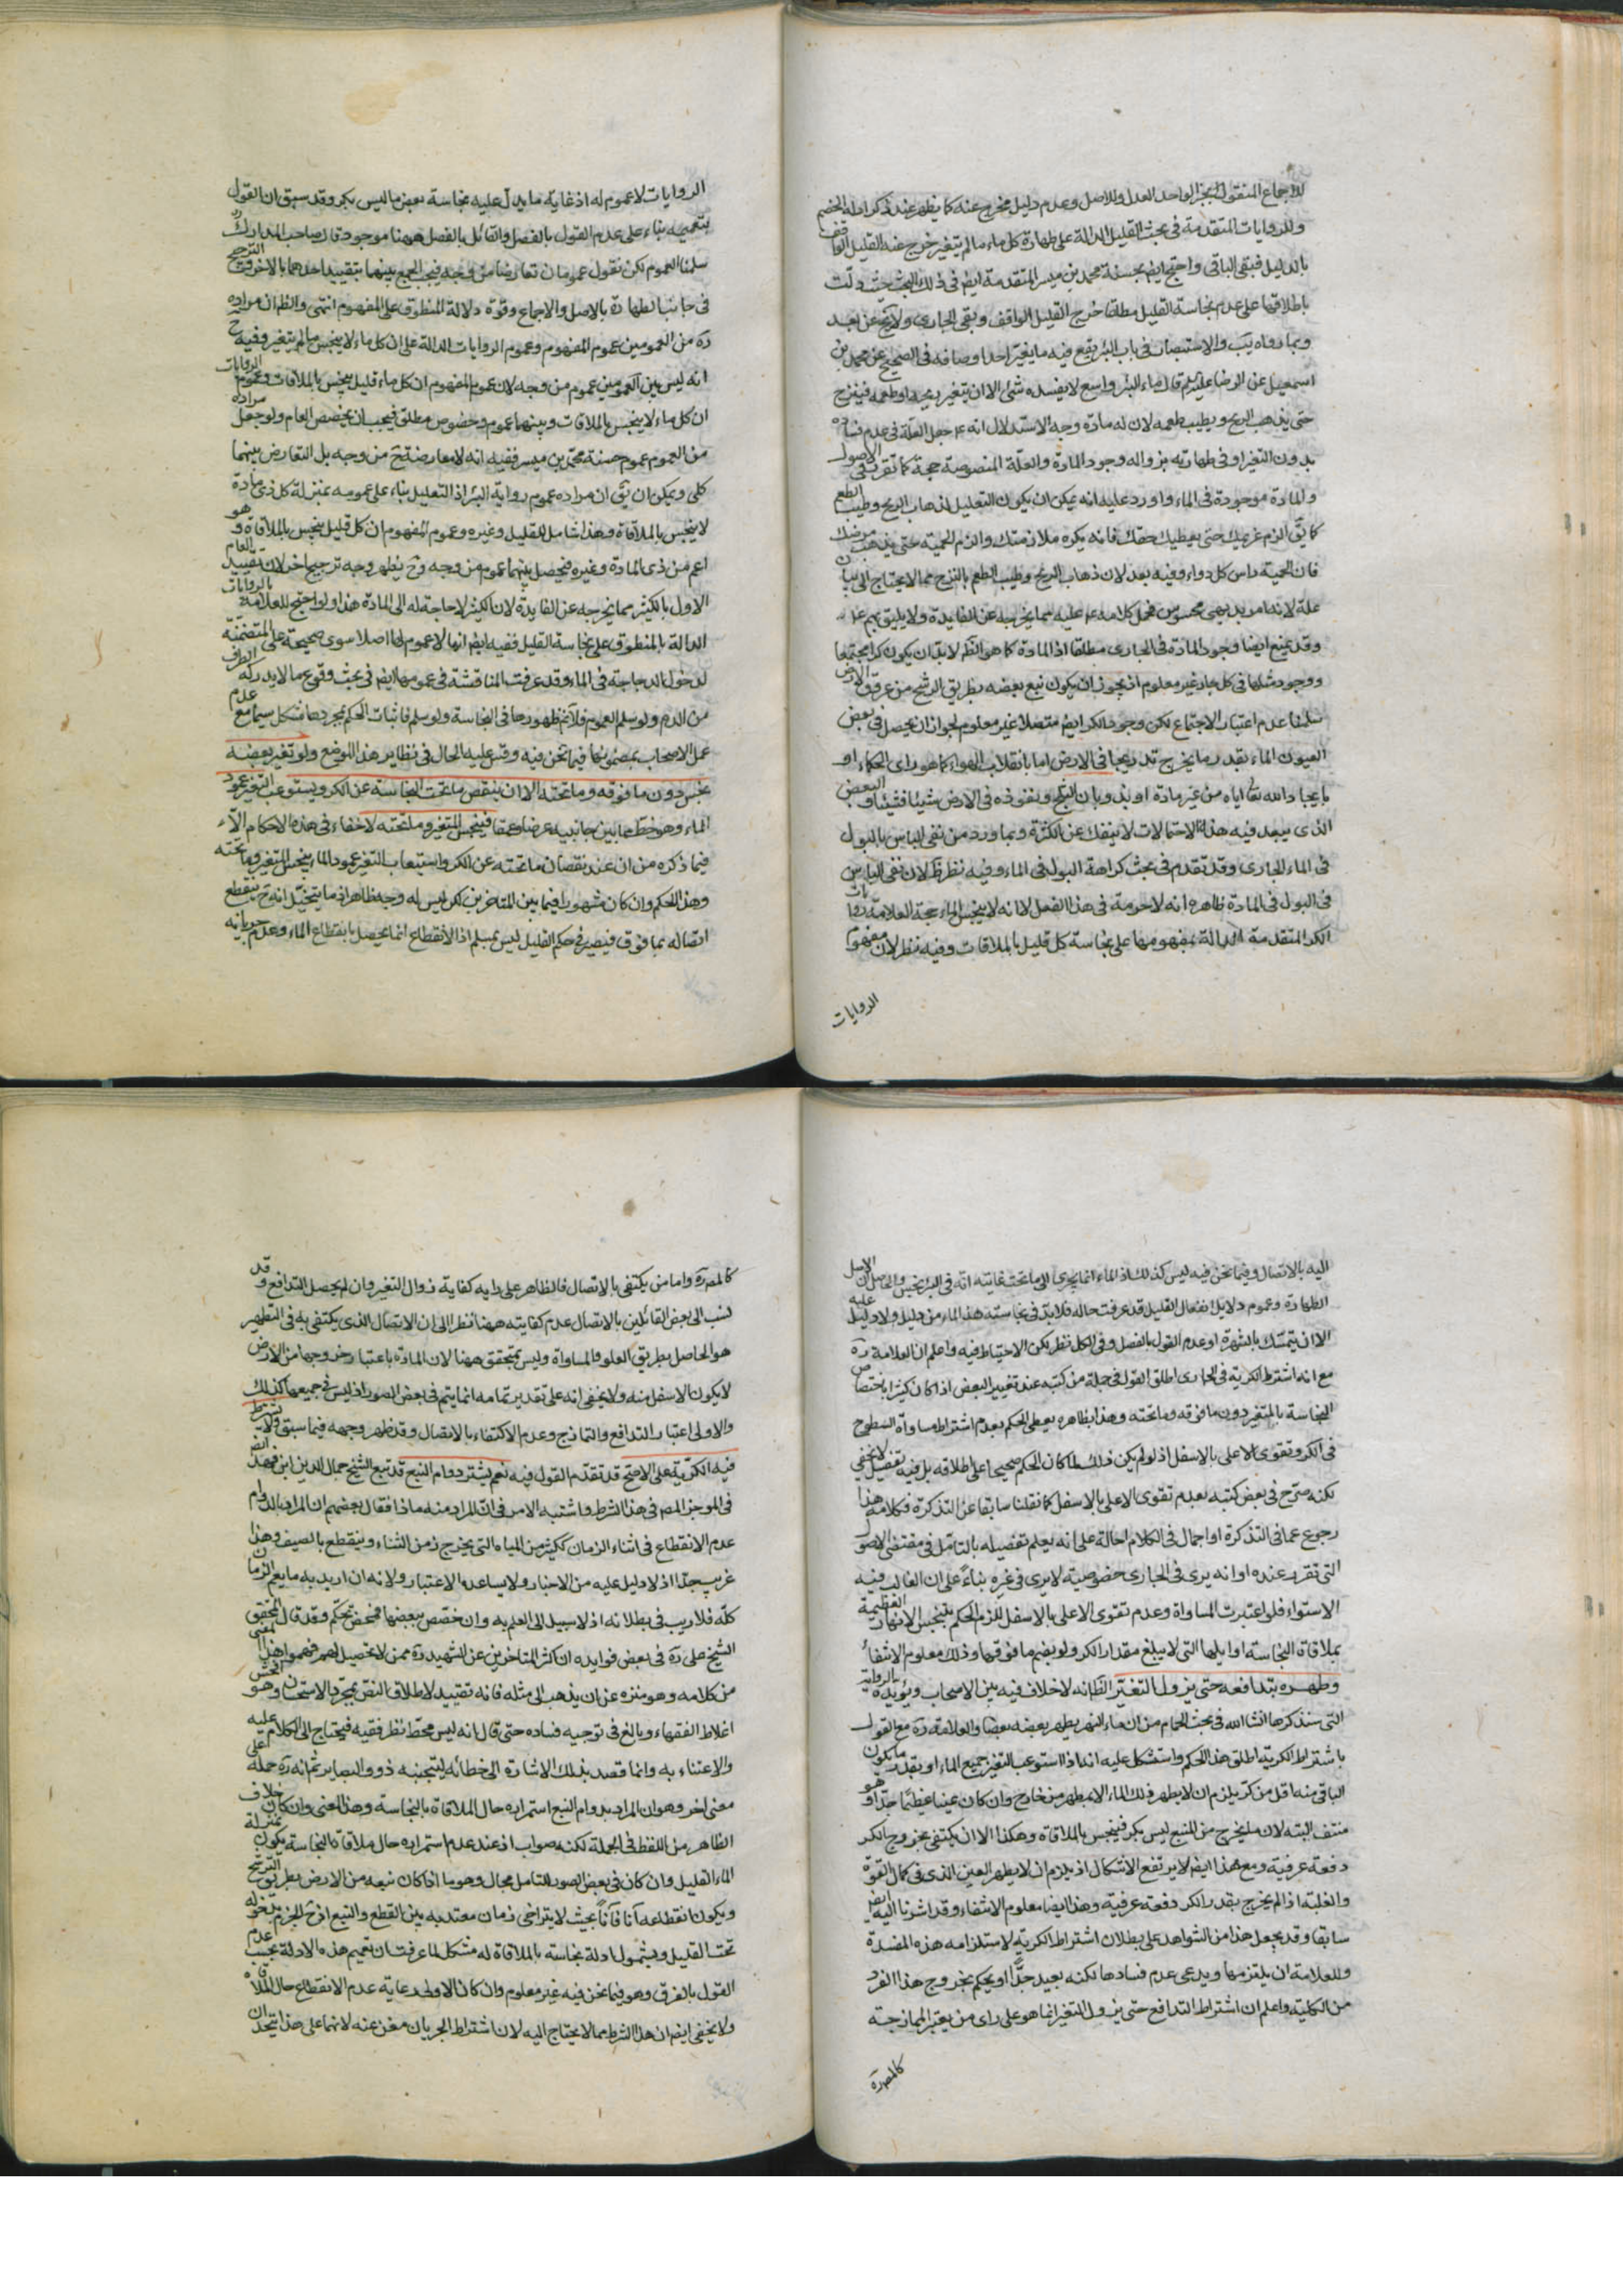 للاجماع المنقول بخبر الواحد العدل وللاصل وعدم دليل مخرج عنه كما يظهر عند ذكر ادلة الخصم
وللروايات المتقدمة في بحث القليل الدالة على طهارة كل ماء ما لم يتغير خرج عنه القليل الواقف
بالدليل فبقى الباقى واحتج ايضا بحسنة محمد بن ميسر المتقدمة ايضا في ذلك البحث حيث دلت
باطلاقها على عدم نجاسة القليل مطلقا خرج القليل الواقف وبقى الجارى ولا يخ عن بعد
وبما رواه يب والاستبصار في باب البئر يقع فيه ما يغير احد اوصافه في الصحيح عن محمد بن
اسمعيل عن الرضا عليه السلم قال ماء البئر واسع لا يفسده شئ الا ان يتغير ريحه او طعمه فينزح
حتى يذهب الريح ويطيب طعمه لان له مادة وجه الاستدلال انه ع جعل العلة في عدم فساده
بدون التغير او في طهارته بزواله وجود المادة والعلة المنصوصة حجة كما تقرر في الاصول
والمادة موجودة في الماء واورد عليه انه يمكن ان يكون التعليل لذهاب الريح وطيب الطعم
كما يق الزم غريمك حتى يعطيك حقك فانه يكره ملازمتك والزم الحمية حتى يذهب مرضك
فان الحمية راس كل دواء وفيه بعد لان ذهاب الريح وطيب الطعم بالنزح مما لا يحتاج الى بيان
علة لانه امر بديهى محسوس فحمل كلامه ع عليه مما يخرجه عن الفايدة ولا يليق بهم ع
وقد يمنع ايضا وجود المادة في الجارى مطلقا اذ المادة كما هو الظ لابد ان يكون كرا مجتمعا
ووجود مثلها في كل جار غير معلوم اذ يجوز ان يكون نبع بعضه بطريق الرشح من عروق الارض
سلمنا عدم اعتبار الاجتماع لكن وجود الكر ايضا متصلا غير معلوم لجواز ان يحصل في بعض
العيون الماء بقدر ما يخرج تدريجا في الارض اما بانقلاب الهواء كما هو راى الحكماء او
بايجاد الله تعالى اياه من غير مادة او بذوبان الثلج ونفوذه في الارض شيئا فشيئا والبعض
الذى يبعد فيه هذه الاحتمالات لا ينفك عن الكثرة وبما ورد من نفى الباس بالبول
في الماء الجارى وقد تقدم في بحث كراهة البول في الماء وفيه نظر ظ لان نفى الباس
في البول في المادة ظاهره انه لا حرمة في هذا الفعل لا انه لا ينجس الماء حجة العلامة روايات
الكر المتقدمة الدالة بمفهومها على نجاسة كل قليل بالملاقات وفيه نظر لان مفهوم
الروايات
الروايات لا عموم له اذ غاية ما يدل عليه نجاسة بعض ما ليس بكر وقد سبق ان القول
بتعميمه بناء على عدم القول بالفصل والقائل بالفصل ههنا موجود قال صاحب المدارك
سلمنا العموم لكن نقول عمومان تعارضا من وجه فيجب الجمع بينهما بتقييد احدهما بالاخر والترجيح
في جانب الطهارة بالاصل والاجماع وقوة دلالة المنطوق على المفهوم انتهى والظ ان مراده
ره من العمومين عموم المفهوم وعموم الروايات الدالة على ان كل ماء لا ينجس ما لم يتغير وفيه ح
انه ليس بين العمومين عموم من وجه لان عموم المفهوم ان كل ماء قليل ينجس بالملاقات وعموم الروايات
ان كل ماء لا ينجس بالملاقات وبينهما عموم وخصوص مطلق فيجب ان يخصص العام ولو جعل مراده
من العموم عموم حسنة محمد بن ميسر ففيه انه لا معارضة ح من وجه بل التعارض بينهما
كلى ويمكن ان يق ان مراده عموم رواية البئر اذ التعليل بناء على عمومه بمنزلة كل ذى مادة
لا ينجس بالملاقاة وهذا شامل للقليل وغيره وعموم المفهوم ان كل قليل ينجس بالملاقاة وهو
اعم من ذى المادة وغيره فيحصل بينهما عموم من وجه وح يظهر وجه ترجيح اخر لان تقييد العام
الاول بالكثير مما يخرجه عن الفايدة لان الكثير لا حاجة له الى المادة هذا ولو احتج للعلامة بالروايات
الدالة بالمنطوق على نجاسة القليل ففيه ايضا انها لا عموم لها اصلا سوى صحيحة على المتضمنة
لدخول الدجاجة في الماء وقد عرفت المناقشة في عمومها ايضا في بحث وقوع ما لا يدركه الطرف
من الدم ولو سلم العموم فلا يخ ظهورها في النجاسة ولو سلم فاثبات الحكم بمجردها مشكل سيما مع عدم
عمل الاصحاب بمضمونها فيما نحن فيه وقس عليه الحال في نظاير هذا الموضع ولو تغير بعضه
نجس دون ما فوقه وما تحته الا ان ينقص ما تحت النجاسة عن الكر ويستوعب التغير عمود
الماء وهو خط ما بين جانبيه عرضا وعمقا فينجس المتغير وما تحته لا خفاء في هذه الاحكام الا
فيما ذكره من ان عند نقصان ما تحته عن الكر واستيعاب التغير عمود الماء ينجس المتغير وما تحته
وهذا الحكم وان كان مشهورا فيما بين المتاخرين لكن ليس له وجه ظاهر اذ ما يتخيل انه ح ينقطع
اتصاله بما فوق فيصير في حكم القليل ليس بمسلم اذ الانقطاع انما يحصل بانقطاع الماء وعدم جريانه
اليه بالاتصال وفيما نحن فيه ليس كذلك اذ الماء انما يجرى الى ما تحت غايته انه في البئر نجس والحاصل ان الاصل
الطهارة وعموم دلايل انفعال القليل قد عرفت حاله فلابد في نجاسته هذا الماء من دليل ولا دليل عليه
الا ان يتمسك بالشهرة او عدم القول بالفصل وفي الكل نظر لكن الاحتياط فيه واعلم ان العلامة ره
مع انه اشترط الكرية في الجارى اطلق القول في جملة من كتبه عند تغيير البعض اذا كان كثيرا باختصاص
النجاسة بالمتغير دون ما فوقه وما تحته وهذا بظاهره يعطى الحكم بعدم اشتراط مساواة السطوح
في الكر وتقوى الاعلى بالاسفل اذ لو لم يكن ذلك لما كان الحكم صحيحا على اطلاقه بل فيه تفصيل لا يخفى
لكنه صرح في بعض كتبه بعدم تقوى الاعلى بالاسفل كما نقلنا سابقا عن التذكرة فكلامه هذا
رجوع عما في التذكرة او اجمال في الكلام احالة على انه يعلم تفصيله بالتامل في مقتضى الاصول
التى تقرر عنده او انه يرى في الجارى خصوصية لا يرى في غيره بناء على ان الغالب فيه
الاستواء فلو اعتبرت المساواة وعدم تقوى الاعلى بالاسفل للزم الحكم بتنجس الانهار العظيمة
بملاقاة النجاسة اوايلها التى لا يبلغ مقدار الكر ولو بضم ما فوقها وذلك معلوم الانتفاء
وطهره بتدافعه حتى يزول التغير الظ انه لا خلاف فيه بين الاصحاب ويؤيده الرواية
التى سنذكرها انشا الله في بحث الحمام من ان ماء النهر يطهر بعضه بعضا والعلامة ره مع القول
باشتراط الكرية اطلق هذا الحكم واستشكل عليه انه اذا استوعب التغير جميع الماء او بقدر ما يكون
الباقى منه اقل من كر يلزم ان لا يطهر ذلك الماء الا بمطهر من خارج وان كان عينا عظيما جدا وهو
منتف البته لان ما يخرج من المنبع ليس بكر فينجس بالملاقاة وهكذا الا ان يكتفى بخروج الكر
دفعة عرفية ومع هذا ايضا لا يرتفع الاشكال اذ يلزم ان لا يطهر العين الذى في كمال القوة
والغلبة اذا لم يخرج بقدر الكر دفعة عرفية وهذا ايضا معلوم الانتفاء وقد اشرنا اليه ايضا
سابقا وقد يجعل هذا من الشواهد على بطلان اشتراط الكرية لاستلزامه هذه المفسدة
وللعلامة ان يلتزمها ويدعى عدم فسادها لكنه بعيد جدا او يحكم بخروج هذا الفرد
من الكلية واعلم ان اشتراط التدافع حتى يزول التغير انما هو على راى من يعتبر الممازجة
كالمصره
كالمصره واما من يكتفى بالاتصال فالظاهر على رايه كفاية زوال التغير وان لم يحصل التدافع وقد
نسب الى بعض القائلين بالاتصال عدم كفايته ههنا نظرا الى ان الاتصال الذى يكتفى به في التطهير
هو الحاصل بطريق العلو والمساواة وليس بمتحقق ههنا لان المادة باعتبار خروجها من الارض
لا يكون الا اسفل منه ولا يخفى انه على تقدير تمامه انما يتم في بعض الصور اذ ليس في جميعها كذلك
والاولى اعتبار التدافع والتمازج وعدم الاكتفاء بالاتصال وقد ظهر وجهه فيما سبق ولا يشترط
فيه الكرية على الاصح قد تقدم القول فيه نعم يشترط دوام النبع قد تبع الشيخ جمال الدين ابن فهد ايضا
في الموجز المصره في هذا الشرط واشتبه الامر في ان المراد منه ماذا فقال بعضهم ان المراد بالدوام
عدم الانقطاع في اثناء الزمان ككثير من المياه التى يخرج زمن الشتاء وينقطع بالصيف وهذا
غريب جدا اذ لا دليل عليه من الاخبار ولا يساعده الاعتبار ولانه ان اريد به ما يعم الزمان
كله فلا ريب في بطلانه اذ لا سبيل الى العلم به وان خصص ببعضها فمحض تحكم وقد قال المحقق
الشيخ على ره في بعض فوايده ان اكثر المتاخرين عن الشهيد ره ممن لا تحصيل لهم فهموا هذا المعنى
من كلامه وهو منزه عن ان يذهب الى مثله فانه تقييد لاطلاق النص بمجرد الاستحسان وهو افحش
اغلاط الفقهاء وبالغ في توجيه فساده حتى قال انه ليس محط نظر فقيه فيحتاج الى الكلام عليه
والاعتناء به وانما قصد بذلك الاشارة الى خطائه ليتجنبه ذوو البصاير ثم انه ره حمله على
معنى اخر وهو ان المراد بدوام النبع استمراره حال الملاقاة بالنجاسة وهذا المعنى وان كان خلاف
الظاهر من اللفظ في الجملة لكنه صواب اذ عند عدم استمراره حال ملاقاة النجاسة يكون بمنزلة
الماء القليل وان كان في بعض الصور للتامل مجال وهو ما اذا كان نبعه من الارض بطريق الترشح
ويكون انقطاعه آنا فآنا بحيث لا يتراخى زمان معتد به بين القطع والنبع اذ ح الجزم بدخوله
تحت القليل وبشمول ادلة نجاسته بالملاقاة له مشكل لما عرفت ان تعميم هذه الادلة بحسب عدم
القول بالفرق وهو فيما نحن فيه غير معلوم وان كان الاولى رعاية عدم الانقطاع حال الملاقاة
ولا يخفى ايضا ان هذا الشرط مما لا يحتاج اليه لان اشتراط الجريان مغن عنه لانهما على هذا يتحدان